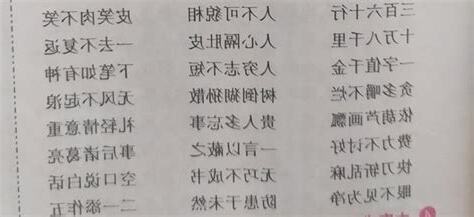 三百六十行 人不可貌相 皮笑肉不笑
十万八千里 人心隔肚皮 一去不复返
一字值千金 人穷志不短 下笔如有神
贪多嚼不烂 树倒猢狲散 无风不起浪
依葫芦画瓢 贵人多忘事 礼轻情意重
费力不讨好 一言以蔽之 事后诸葛亮
快刀斩乱麻 无巧不成书 空口说白话
眼不见为净 防患于未然 二一添作五